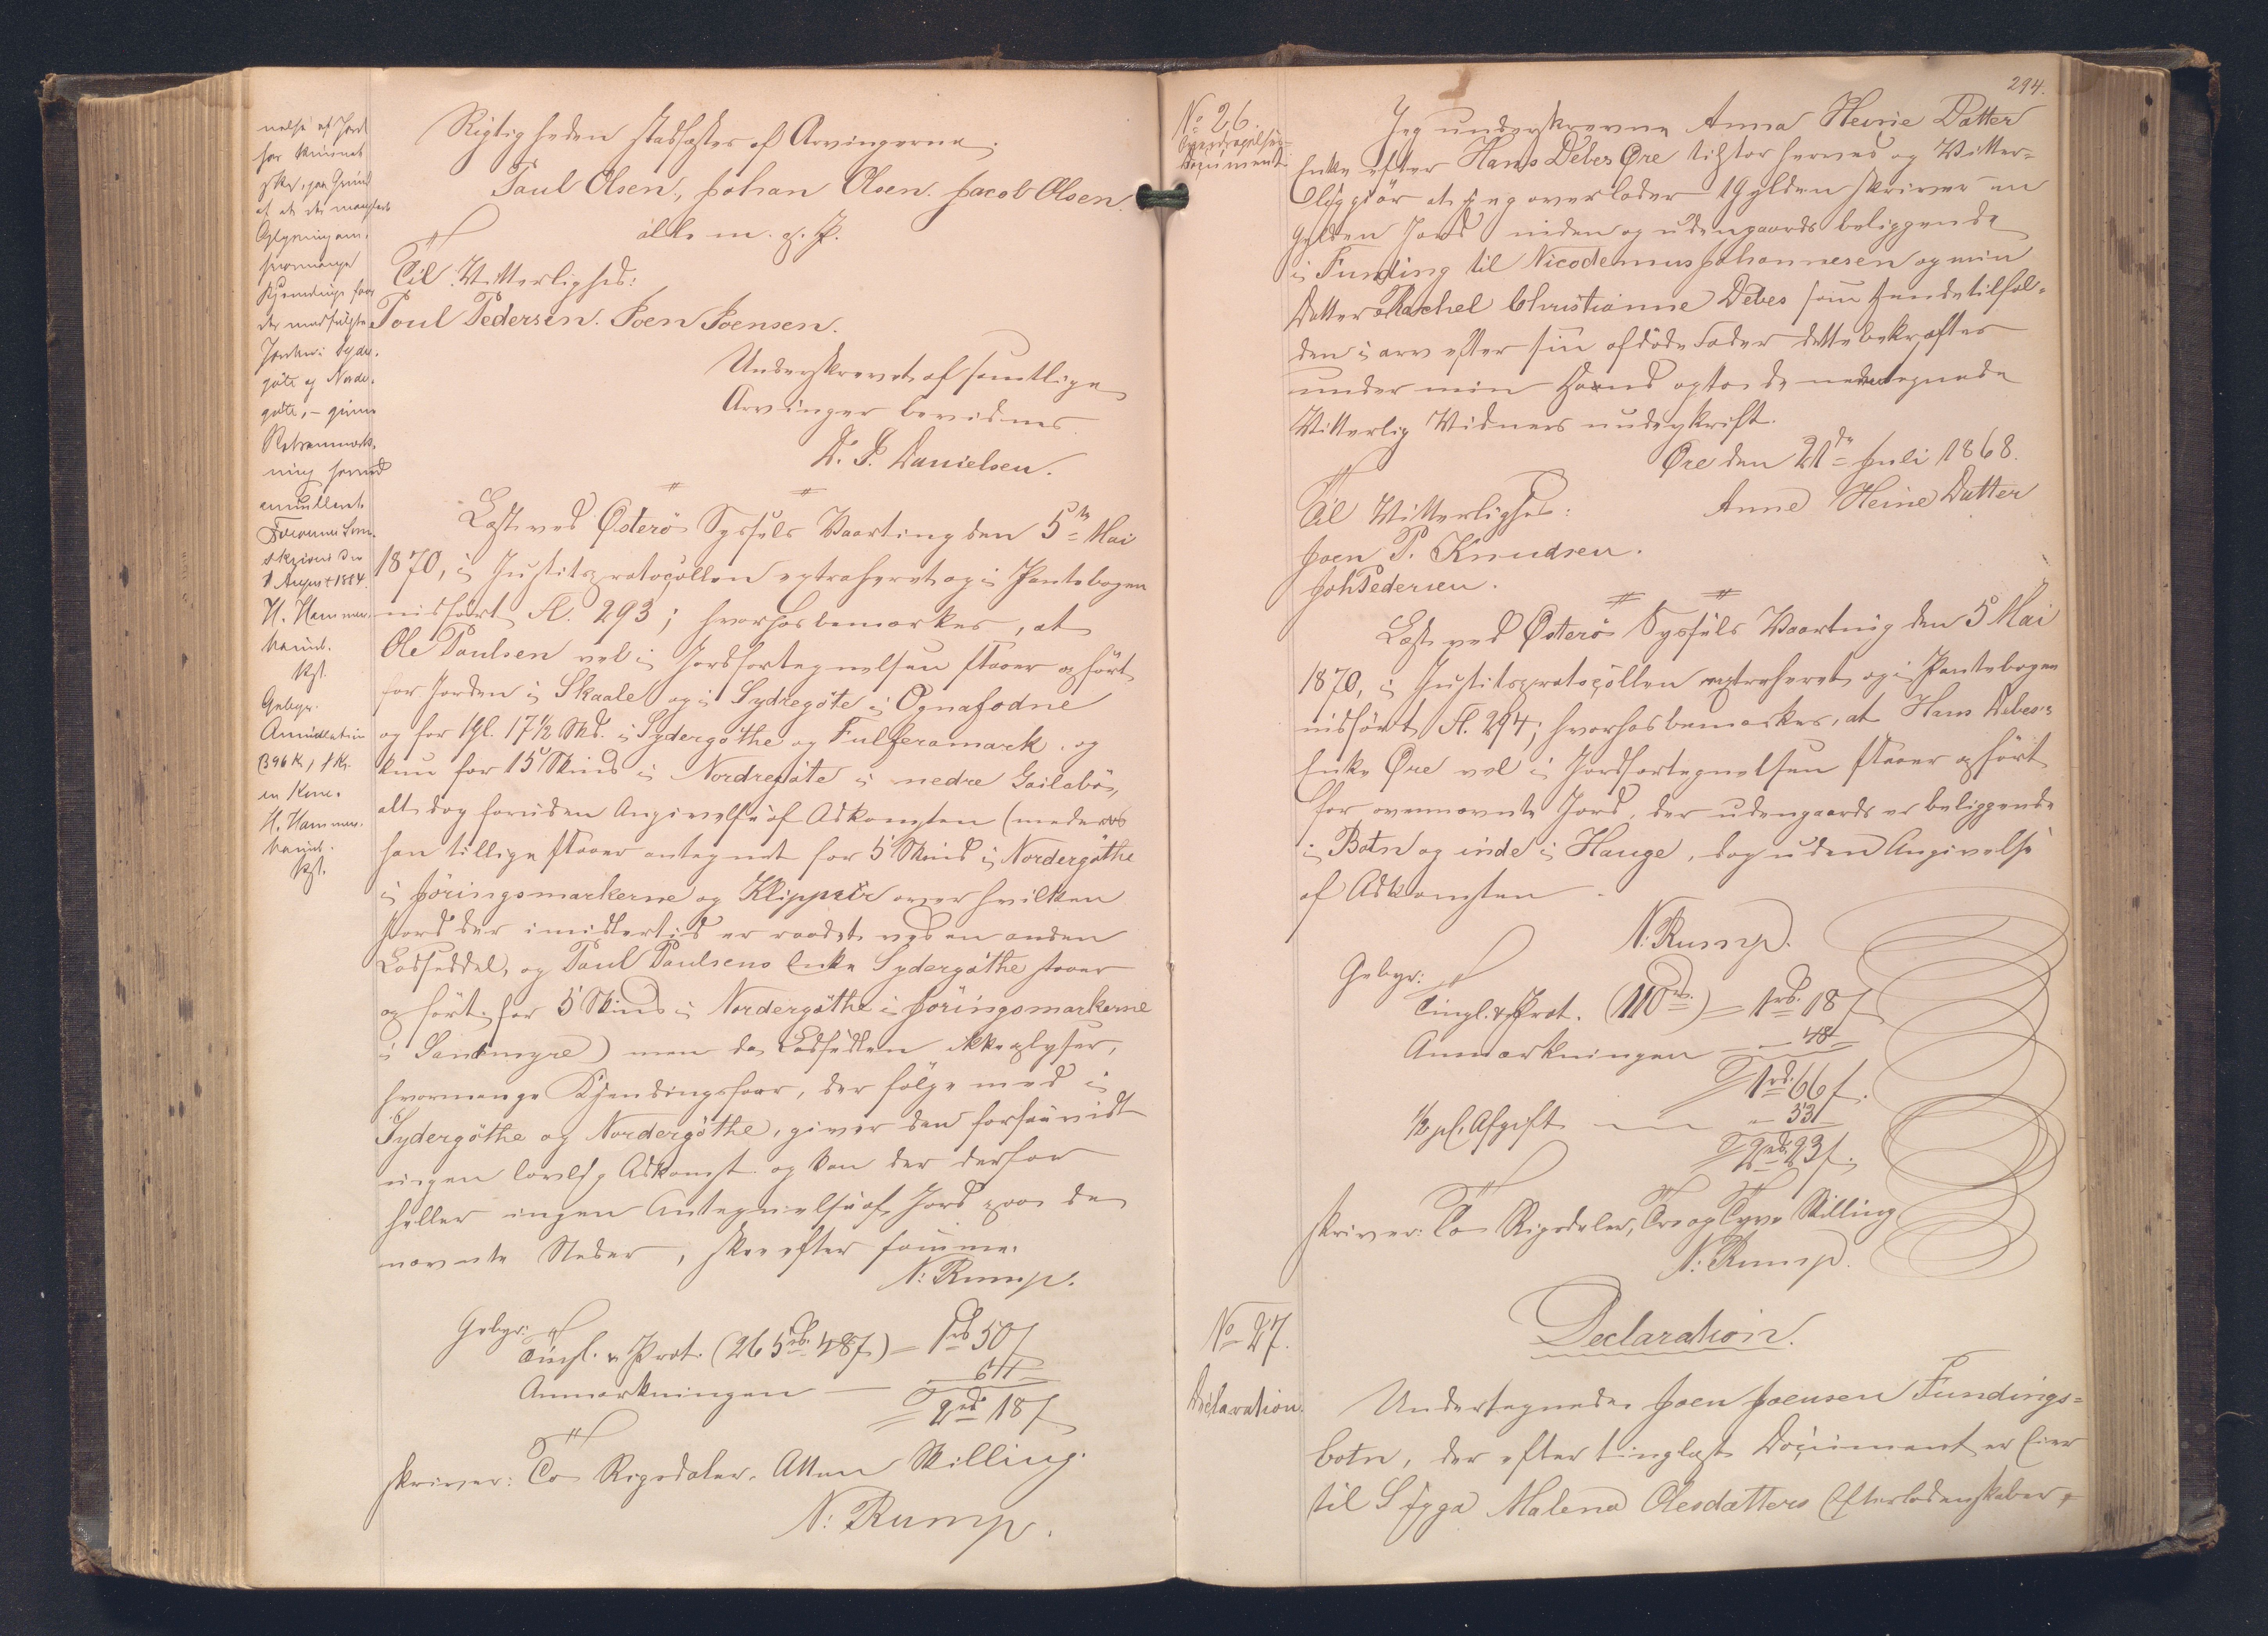 nelse af Jord
her kunnet
ske, paa Grund
af at der manglede
Oplysning om,
hvormange
Kjendingsfaar
der medfulgte
Jorden i Syder-
göte og Norde-
göte, –
ning herved
annulleret.
Foreoms Sorn-
skriveri den
1 August 1884.
H. Hammers-
haimb.
kst.
Gebyr.
Annullation
B 96 k, 1 Kr.
en Krone.
H. Hammers-
haimb.
kst.
Rigtigheden stadfæstes af Arvingerne.
Poul Olsen, Johan Olsen. Jacob Olsen.
alle m. f. P.
Til Vitterlighed:
Poul Pedersen. Joen Joensen.
Underskrevet af samtlige
Arvinger bevidnes
D. J. Danielsen.
Læst ved Østerö Syssels Vaarting den 5te Mai
1870, i Justitsprotocollen extraheret og i Pantebogen
indfört Fl. 293; hvorhos bemærkes, at
Ole Poulsen vel i Jordfortegnelsen staaer opfört
for Jorden i Skaale og i Sydregöte i Ognafodne
og for 1 Gl. 17½ Skd. i Sydergöthe og Fulferamark, og
kun for 15 Skind i Nordregöte i nedre Gailabö,
alt dog foruden Angivelse af Adkomsten (medens
han tillige staaer antegnet for 5 Skind i Nordergöthe
i Jöringsmarkerne og Klippur over hvilken
Jord der imidlertid er raadet ved en anden
Lodseddel, og Poul Poulsens Enke Sydergöthe staaer
opfört for 5 Skind i Nordergöthe i Jöringsmarkerne
i Sandmyre) men da Lodsedlen ikke oplyser,
hvormange Kjendingsfaar, der fölge med i
Sydergöthe og Nordergöthe, giver den forsaavidt
ingen lovlig Adkomst og kan der derfor
heller ingen Antegnelse af Jord paa de
nævnte Steder, skee efter samme.
N: Rump.
Gebyr:
Tingl. & Prot. (265 rd. 48 s) = 1 rd 50 s
Anmærkningen — 64
2 rd 18 s
skriver: To Rigsdaler, Atten Skilling.
N: Rump.
294.
No 26.
Overdragelses-
document
Jeg underskrevne Anna Heine Datter
Enke efter Hans Debes Øre tilstor herved og Vitter-
liggiör at jeg overlader 1 Gylden skriver en
Gylden Jord inden og udengaards beliggende
i Funding til Nicodemus Johannesen og min
Datter Rachel Christianne Debes som hende tilfal-
den i arv efter sin afdöde Fader dette bekræftes
under min Haand og to de nedentegnede
Vitterlig Vidners underskrift.
Øre den 21de Juli 1868.
Til Vitterlighed: Anne Heine Datter
Joen P. Knudsen.
Joh Pedersen.
Læst ved Østerö Syssels Vaarting den 5 Mai
1870, i Justitsprotocollen extraheret og i Pantebogen
indfört Fl. 294; hvorhos bemærkes, at Hans Debes's
Enke Øre vel i Jordfortegnelsen staaer opfört
for ovennævnte Jord, der udengaards er beliggende
i Botn og inde i Hauge, dog uden Angivelse
af Adkomsten.
N: Rump.
Gebyr:
Tingl. & Prot. (110 rd.) = 1 rd. 18 s
Anmærkningen — " 48
1 rd. 66 s.
½ pC. Afgift — " 53
2 rd. 23 s.
skriver: To Rigsdaler, Tre og Tyve Skilling
N: Rump.
No 27.
Declaration.
Declaration.
Undertegnede Joen Joensen Fundings-
botn, der efter tinglæst Document er Eier
til Sygga Malena Olesdatters Efterladenskaber,